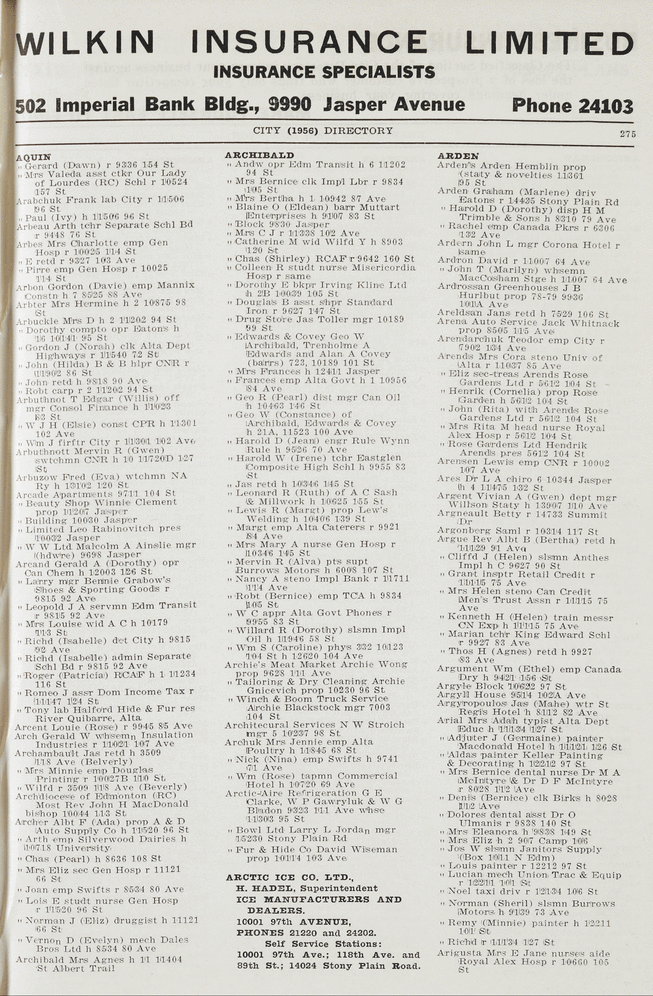 WILKIN INSURANCE LIMITED
INSURANCE SPECIALISTS
502 Imperial Bank Bldg., 9990 Jasper Avenue Phone 24103
CITY (1956) DIRECTORY 275
AQUIN
" Gerard (Dawn) r 9336 154 St
" Mrs Valeda asst ctkr Our Lady
of Lourdes (RC) Schl r 10524
157 St
Arabchuk Frank lab City r 11506
96 St
" Paul (Ivy) h 11506 96 St
Arbeau Arth tchr Separate Schl Bd
r 9448 76 St
Arbes Mrs Charlotte emp Gen
Hosp r 10025 114 St
" E retd r 9327 103 Ave
" Pirre emp Gen Hosp r 10025
114 St
Arbon Gordon (Davie) emp Mannix
Constn h 7 8525 88 Ave
Arbter Mrs Hermine h 2 10875 98
St
Arbuckle Mrs D h 2 11202 94 St
" Dorothy compto opr Eatons h
16 10141 95 St
" Gordon J (Norah) clk Alta Dept
Highways r 11540 72 St
" John (Hilda) B & B hlpr CNR r
11902 86 St
" John retd h 9818 90 Ave
" Robt carp r 2 11202 94 St
Arbuthnot T Edgar (Willis) off
mgr Consol Finance h 11023
83 St
" W J H (Elsie) const CPR h 11301
102 Ave
" Wm J firftr City r 11301 102 Ave
Arbuthnott Mervin R (Gwen)
swtchmn CNR h 10 11720D 127
St
Arbuzow Fred (Eva) wtchmn NA
Ry h 13102 120 St
Arcade Apartments 9711 104 St
" Beauty Shop Winnie Clement
prop 11207 Jasper
" Building 10030 Jasper
" Limited Leo Rabinovitch pres
10032 Jasper
" W W Ltd Malcolm A Ainslie mgr
(hdwre) 9698 Jasper
Arcand Gerald A (Dorothy) opr
Can Chem h 12003 126 St
" Larry mgr Bennie Grabow's
Shoes & Sporting Goods r
9815 92 Ave
" Leopold J A servmn Edm Transit
r 9815 92 Ave
" Mrs Louise wid A C h 10179
113 St
" Richd (Isabelle) det City h 9815
92 Ave
" Richd (Isabelle) admin Separate
Schl Bd r 9815 92 Ave
" Roger (Patricia) RCAF h 1 11234
116 St
" Romeo J assr Dom Income Tax r
11147 124 St
" Tony lab Halford Hide & Fur res
River Quibarre, Alta
Arcent Louie (Rose) r 9945 85 Ave
Arch Gerald W whsemn Insulation
Industries r 11021 107 Ave
Archambault Jas retd h 3509
118 Ave (Belverly)
" Mrs Minnie emp Douglas
Printing r 10027B 110 St
" Wilfd r 3509 118 Ave (Beverly)
Archdiocese of Edmonton (RC)
Most Rev John H MacDonald
bishop 10044 113 St
Archer Albt F (Ada) prop A & D
Auto Supply Co h 11520 96 St
" Arth emp Silverwood Dairies h
10718 University
" Chas (Pearl) h 8636 108 St
" Mrs Eliz sec Gen Hosp r 11121
66 St
" Joan emp Swifts r 8534 80 Ave
" Lois E studt nurse Gen Hosp
r 11520 96 St
" Norman J (Eliz) druggist h 11121
66 St
" Vernon D (Evelyn) mech Dales
Bros Ltd h 8534 80 Ave
Archibald Mrs Agnes h 11 11404
St Albert Trail
ARCHIBALD
" Andw opr Edm Transit h 6 11202
94 St
" Mrs Bernice clk Impl Lbr r 9834
105 St
" Mrs Bertha h 1 10942 87 Ave
" Blaine O (Eldean) barr Muttart
Enterprises h 9107 83 St
" Block 9830 Jasper
" Mrs C J r 11338 102 Ave
" Catherine M wid Wilfd Y h 8903
120 St
" Chas (Shirley) RCAF r 9642 160 St
" Colleen R studt nurse Misericordia
Hosp r same
" Dorothy E bkpr Irving Kline Ltd
h 2B 10039 105 St
" Douglas B asst shpr Standard
Iron r 9627 147 St
" Drug Store Jas Toller mgr 10189
99 St
" Edwards & Covey Geo W
Archibald, Trenholme A
Edwards and Alan A Covey
(barrs) 723, 10189 101 St
" Mrs Frances h 12411 Jasper
" Frances emp Alta Govt h 1 10956
84 Ave
" Geo R (Pearl) dist mgr Can Oil
h 10463 146 St
" Geo W (Constance) of
Archibald, Edwards & Covey
h 21A, 11523 100 Ave
" Harold D (Jean) engr Rule Wynn
Rule h 9526 70 Ave
" Harold W (Irene) tchr Eastglen
Composite High Schl h 9955 83
St
" Jas retd h 10346 145 St
" Leonard R (Ruth) of A C Sash
& Millwork h 10625 155 St
" Lewis R (Margt) prop Lew's
Welding h 10406 139 St
" Margt emp Alta Caterers r 9921
84 Ave
" Mrs Mary A nurse Gen Hosp r
10346 145 St
" Mervin R (Alva) pts supt
Burrows Motors h 6008 107 St
" Nancy A steno Impl Bank r 11711
114 Ave
" Robt (Bernice) emp TCA h 9834
105 St
" W C appr Alta Govt Phones r
9955 83 St
" Willard R (Dorothy) slsmn Impl
Oil h 11946 58 St
" Wm S (Caroline) phys 332 10123
104 St h 12620 104 Ave
Archie's Meat Market Archie Wong
prop 9628 111 Ave
" Tailoring & Dry Cleaning Archie
Gnicevich prop 10230 96 St
" Winch & Boom Truck Service
Archie Blackstock mgr 7003
104 St
Architectural Services N W Stroich
mgr 5 10237 98 St
Archuk Mrs Jennie emp Alta
Poultry h 11845 68 St
" Nick (Nina) emp Swifts h 9741
71 Ave
" Wm (Rose) tapmn Commercial
Hotel h 10726 69 Ave
Arctic-Aire Refrigeration G E
Clarke, W P Gawryluk & W G
Bladon 9323 111 Ave whse
11303 95 St
" Bowl Ltd Larry L Jordan mgr
15230 Stony Plain Rd
" Fur & Hide Co David Wiseman
prop 10114 103 Ave
ARCTIC ICE CO. LTD.,
H. HADEL, Superintendent
ICE MANUFACTURERS AND
DEALERS.
10001 97th AVENUE,
PHONES 21220 and 24202.
Self Service Stations:
10001 97th Ave.; 118th Ave. and
89th St.; 14024 Stony Plain Road.
ARDEN
Arden's Arden Hemblin prop
(staty & novelties 11361
95 St
Arden Graham (Marlene) driv
Eatons r 14435 Stony Plain Rd
" Harold D (Dorothy) disp H M
Trimble & Sons h 8310 79 Ave
" Rachel emp Canada Pkrs r 6306
132 Ave
Ardern John L mgr Corona Hotel r
same
Ardron David r 11007 64 Ave
" John T (Marilyn) whsemn
MacCosham Stge h 11007 64 Ave
Ardrossan Greenhouses J B
Hurlbut prop 78-79 9936
101A Ave
Areldsan Jans retd h 7529 106 St
Arena Auto Service Jack Whitnack
prop 8505 115 Ave
Arendarchuk Teodor emp City r
7902 134 Ave
Arends Mrs Cora steno Univ of
Alta r 11037 85 Ave
" Eliz sec-treas Arends Rose
Gardens Ltd r 5612 104 St
" Henrik (Cornelia) prop Rose
Garden h 5612 104 St
" John (Rita) with Arends Rose
Gardens Ltd r 5612 104 St
" Mrs Rita M head nurse Royal
Alex Hosp r 5612 104 St
" Rose Gardens Ltd Hendrik
Arends pres 5612 104 St
Arensen Lewis emp CNR r 10002
107 Ave
Ares Dr L A chiro 6 10344 Jasper
h 4 11475 132 St
Argent Vivian A (Gwen) dept mgr
Willson Staty h 13907 110 Ave
Argneault Betty r 14733 Summit
Dr
Argonberg Saml r 10314 117 St
Argue Rev Albt B (Bertha) retd h
1129 91 Ave
" Cliffd J (Helen) slsmn Anthes
Impl h C 9627 90 St
" Grant insptr Retail Credit r
11115 75 Ave
" Mrs Helen steno Can Credit
Men's Trust Assn r 11115 75
Ave
" Kenneth H (Helen) train messr
CN Exp h 11115 75 Ave
" Marian tchr King Edward Schl
r 9927 83 Ave
" Thos H (Agnes) retd h 9927
83 Ave
Argument Wm (Ethel) emp Canada
Dry h 9421 156 St
Argyle Block 10622 97 St
Argyll House 9514 102A Ave
Argytopoulos Jas (Mahe) wtr St
Regis Hotel h 8112 82 Ave
Arial Mrs Adah typist Alta Dept
Educ h 11134 127 St
" Adjuter J (Germaine) painter
Macdonald Hotel h 11121 126 St
" Aldas painter Keller Painting
& Decorating h 12212 97 St
" Mrs Bernice dental nurse Dr M A
McIntyre & Dr D F McIntyre
r 8028 112 Ave
" Denis (Bernice) clk Birks h 8028
112 Ave
" Dolores dental asst Dr O
Ulmanis r 9838 140 St
" Mrs Eleanora h 9838 149 St
" Mrs Eliz h 2 907 Camp 106
" Jos W slsmn Janitors Supply
(Box 1011 N Edm)
" Louis painter r 12212 97 St
" Lucian mech Union Trac & Equip
r 12211 101 St
" Noel taxi driv r 12134 106 St
" Norman (Sheril) slsmn Burrows
Motors h 9139 73 Ave
" Remy (Minnie) painter h 12211
101 St
" Richd r 11134 127 St
Arigusta Mrs E Jane nurses aide
Royal Alex Hosp r 10660 105
St